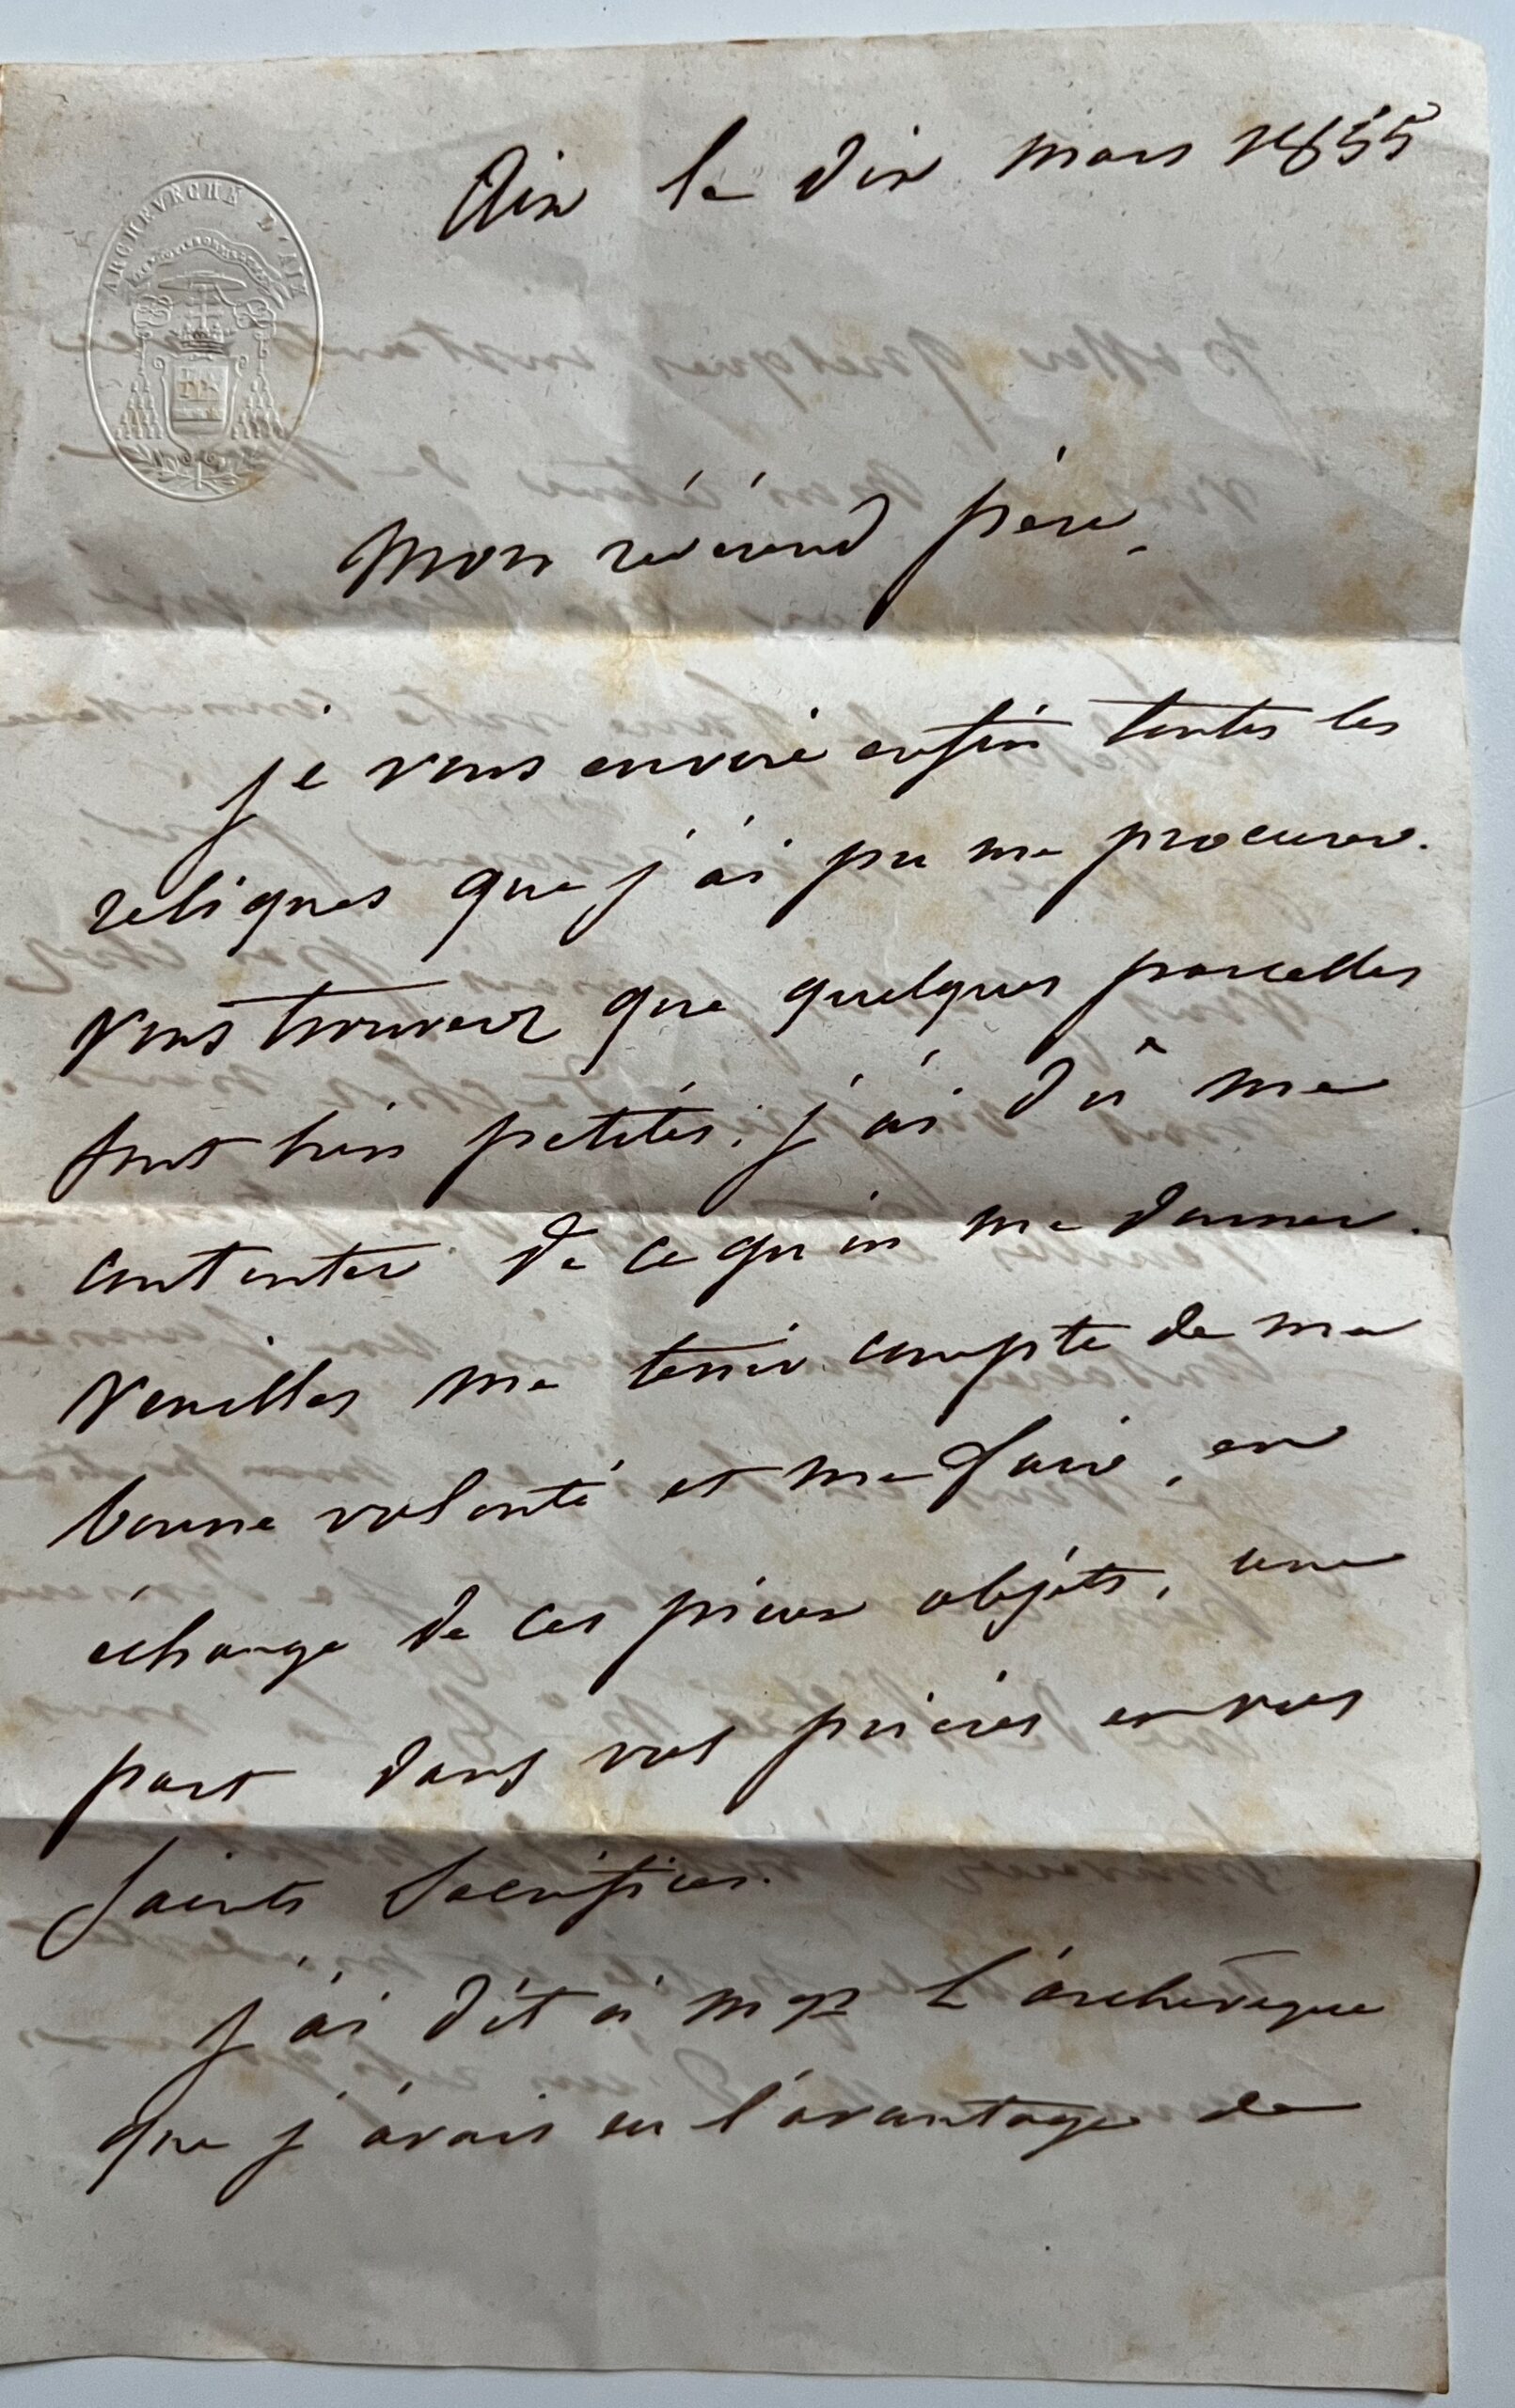 ARCHEVECHÉ D'AIX
Aix le dix mars 1855
Mon révérend père,
je vous envoie enfin toutes les
reliques que j'ai pu me procurer.
Vous trouverez que quelques parcelles
sont bien petites; j'ai dû me
contenter de ce qu'on me donner.
Veuillez me tenir compte de ma
bonne volonté et me faire, en
échange de ces pieux objèts, une
part dans vos prières en vos
Saints Sacrifices.
j'ai dit à Mgr L'archevêque
que j'avais eu l'avantage de